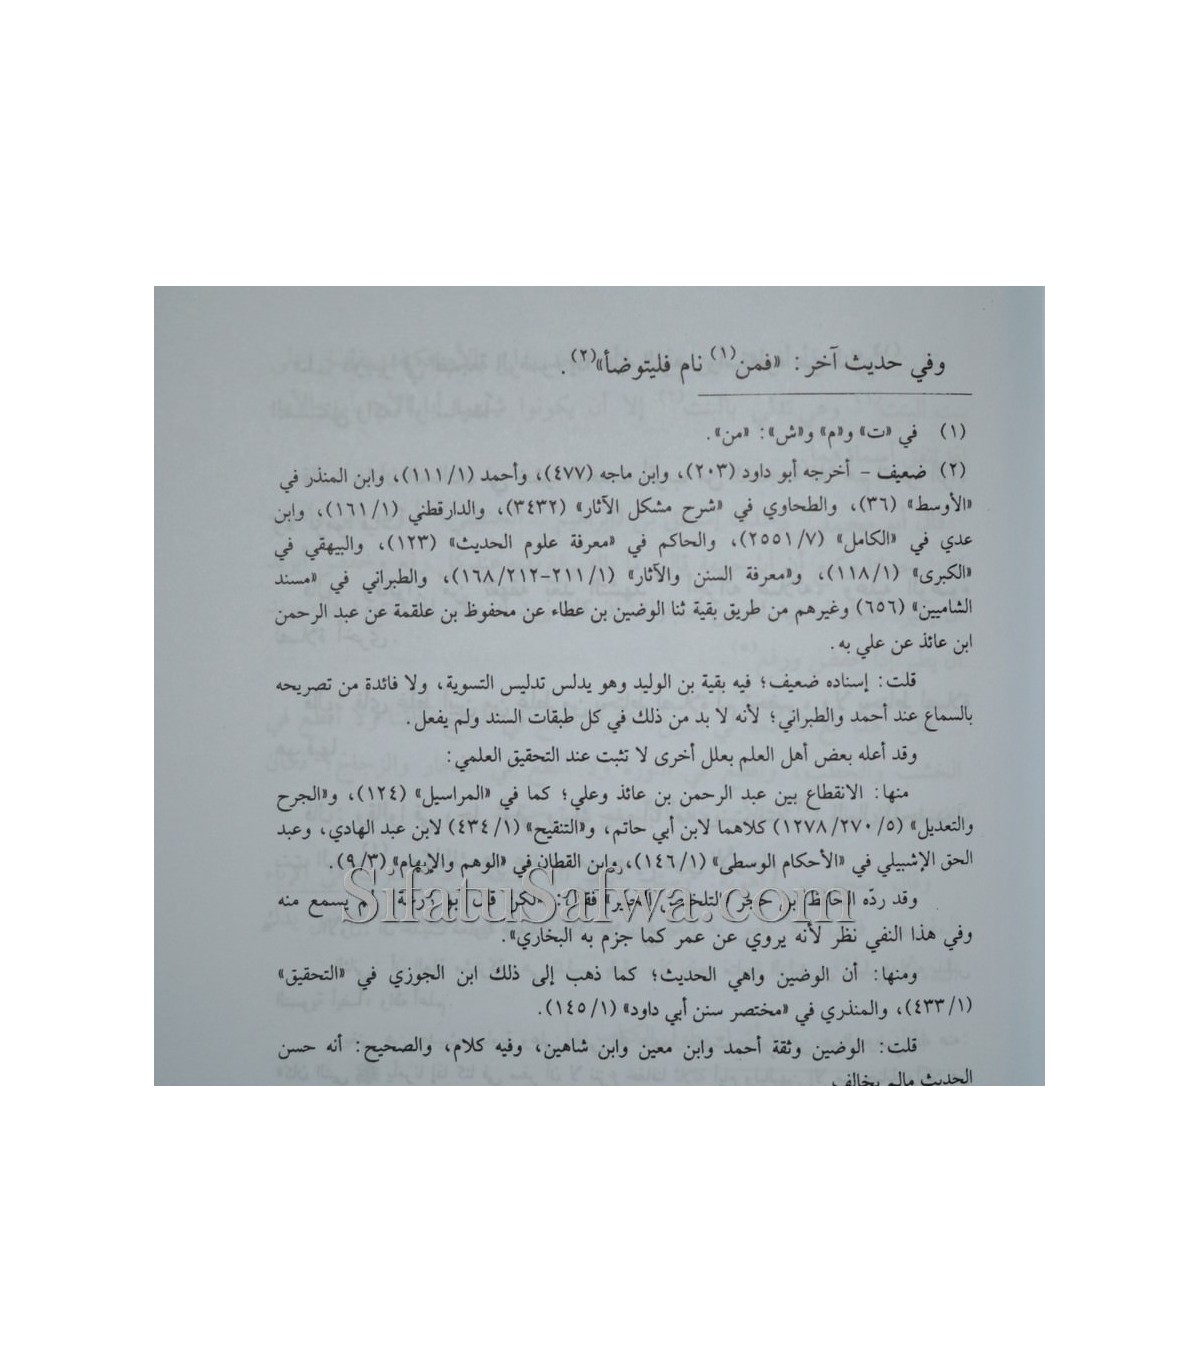 وفي حديث آخر: «فمن(١) نام فليتوضأ»(٢).
(١) في «ت» و«م» و«ش»: «من».
(٢) ضعيف - أخرجه أبو داود (٢٠٣)، وابن ماجه (٤٧٧)، وأحمد (١/١١١)، وابن المنذر في
«الأوسط» (٣٦)، والطحاوي في «شرح مشكل الآثار» (٣٤٣٢)، والدارقطني (١/١٦١)، وابن
عدي في «الكامل» (٧/٢٥٥١)، والحاكم في «معرفة علوم الحديث» (١٢٣)، والبيهقي في
«الكبرى» (١/١١٨)، و«معرفة السنن والآثار» (١/٢١١-٢١٢/١٦٨)، والطبراني في «مسند
الشاميين» (٦٥٦) وغيرهم من طريق بقية ثنا الوضين بن عطاء عن محفوظ بن علقمة عن عبد الرحمن
ابن عائذ عن علي به.
قلت: إسناده ضعيف؛ فيه بقية بن الوليد وهو يدلس تدليس التسوية، ولا فائدة من تصريحه
بالسماع عند أحمد والطبراني؛ لأنه لا بد من ذلك في كل طبقات السند ولم يفعل.
وقد أعله بعض أهل العلم بعلل أخرى لا تثبت عند التحقيق العلمي:
منها: الانقطاع بين عبد الرحمن بن عائذ وعلي؛ كما في «المراسيل» (١٢٤)، و«الجرح
والتعديل» (٥/٢٧٠/١٢٧٨) كلاهما لابن أبي حاتم، و«التنقيح» (١/٤٣٤) لابن عبد الهادي، وعبد
الحق الإشبيلي في «الأحكام الوسطى» (١/١٤٦)، وابن القطان في «الوهم والإيهام» (٣/٩).
وقد ردّه الحافظ بن حجر «التلخيص الحبير» فقال: «لكن قال أبو زرعة: لم يسمع منه
وفي هذا النفي نظر لأنه يروي عن عمر كما جزم به البخاري».
ومنها: أن الوضين واهي الحديث؛ كما ذهب إلى ذلك ابن الجوزي في «التحقيق»
(١/٤٣٣)، والمنذري في «مختصر سنن أبي داود» (١/١٤٥).
قلت: الوضين وثقة أحمد وابن معين وابن شاهين، وفيه كلام، والصحيح: أنه حسن
الحديث مالم يخالف
SifatuSafwa.com